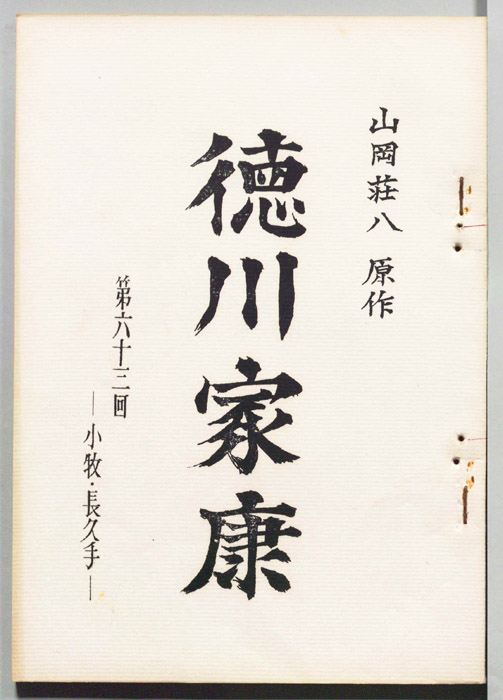 山岡荘八 原作
徳川家康
第六十三回
―小牧・長久手―